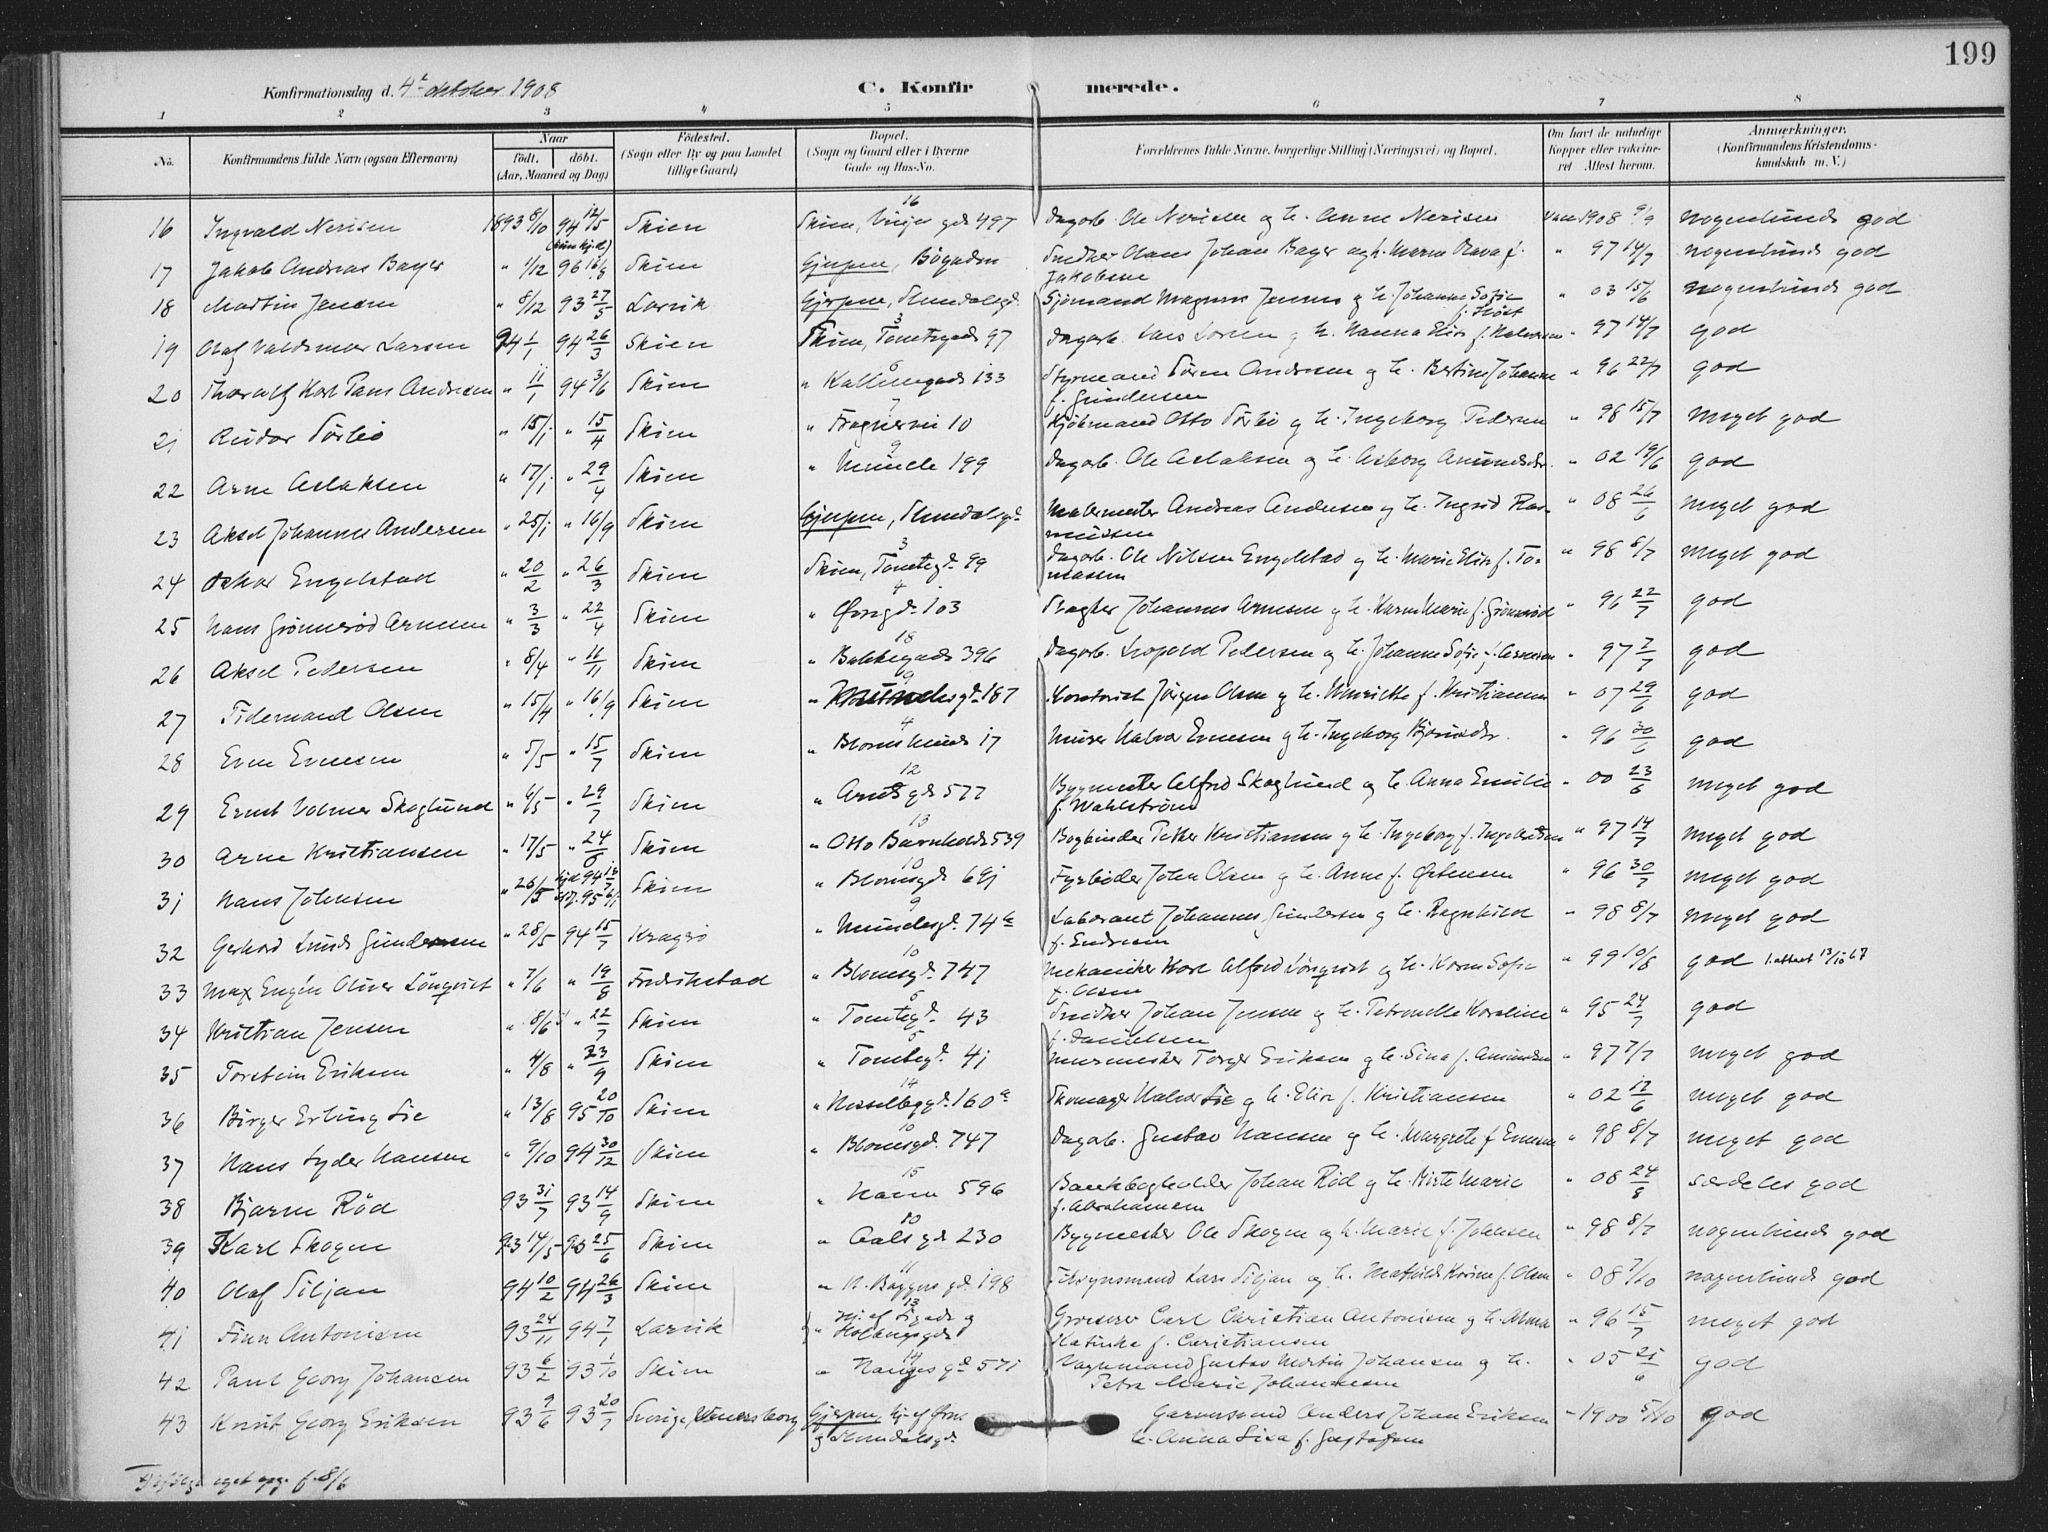 199
Konfirmationsdag d. 4de oktober 1908 C. Konfirmerede.
1 2 3 4 5 6 7 8
No. Konfirmandens fulde Navn (ogsaa Efternavn) Naar født. døbt. (Aar, Maaned og Dag) Fødested. (Sogn eller By og paa Landet tillige Gaard) Bopæl. (Sogn og Gaard eller i Byerne Gade og Hus-No. Forældrenes fulde Navne, borgerlige Stilling (Næringsvei) og Bopæl. Om havt de naturlige Kopper eller vakcineret Attest herom. Anmærkninger. (Konfirmandens Kristendomskundskab m. V.)
16 Ingvald Nerisen 1893 8/10 94 12/5 Skien Skien, gd 497 Dagarb. Ole Nerisen og h. Anne Nerisen Vacc 1908 9/9 nogenlunde god
17 Jakob Andreas Bager " 1/12 96 16/8 Skien Gjerpen, Bøgaden Snedker Olaus Johan Bager og h. Maren f. Jakobsen " 97 14/7 nogenlunde god
18 Martin Jensen " 8/12 93 27/5 Larvik Gjerpen, Stundalsgd. Sjømand Magnus Jensen og h. Johanne Sofie f. Høst " 03 15/6 nogenlunde god
19 Olaf Valdemar Larsen 94 1/1 94 26/3 Skien Skien, Tomtegade 97 Dagarb. Lars Larsen og h. Hanna Elise f. Halvorsen " 97 14/7 god
20 Thoralf Karl Hans Andresen " 11/1 94 3/6 Skien " 133 Styrmand Søren Andresen og h. Bertine Johanne f. Gundersen " 96 22/7 god
21 Reidar Sørbø " 15/1 " 15/4 Skien " Frognervei 10 Kjøbmand Otto Sørbø og h. Ingeborg Pedersen " 98 15/7 meget god
22 Arne Aslaksen " 17/1 " 29/4 Skien " 199 Dagarb. Ole Aslaksen og h. Asborg Amundsdr. " 02 19/6 god
23 Aksel Johannes Andersen " 25/1 " 16/9 Skien Gjerpen, Stundalsgd. Malermester Andreas Andersen og h. Ingrid Rasmussen " 08 26/6 meget god
24 Oskar Engelstad " 20/2 " 26/3 Skien Skien, Tomtegd. 99 Dagarb. Ole Nilsen Engelstad og h. Marie Elise f. Tomassen " 98 8/7 meget god
25 Hans Grønnerød Arnesen " 3/3 " 22/4 Skien " Øvregd. 103 Johannes Arnesen og h. Karen Marie f. Grønnerød " 96 22/7 god
26 Aksel Pedersen " 8/4 " 11/11 Skien " Bakkegade 396 Dagarb. Leopold Pedersen og h. Johanne Sofie f. Arnesen " 97 7/7 god
27 Tidemand Olsen " 15/4 " 16/9 Skien " gd. 187 Jørgen Olsen og h. Henriette f. Kristiansen " 07 29/6 god
28 Even Evensen " 5/5 " 15/7 Skien " 17 Murer Halvor Evensen og h. Ingeborg Bjørnsdr. " 96 30/6 god
29 Ernst Volmer Skoglund " 6/5 " 29/7 Skien " gd 577 Bygmester Alfred Skoglund og h. Anna Emilie f. Wahlstrøm " 00 23/6 meget god
30 Arne Kristiansen " 17/5 " 24/6 Skien " Otto Barnholdt 539 Bogbinder Petter Kristiansen og h. Ingeborg f. Ingebretsen " 97 14/7 meget god
31 Hans Johnsen " 26/5 Skien " Blomsgd. 691 Fyrbøder John Olsen og h. Anne f. Østensen " 96 30/7 meget god
32 Gerhard Lunde Gundersen " 28/5 94 15/7 Kragerø " 74a Laborant Johannes Gundersen og h. Ragnhild f. Endresen " 98 8/7 meget god
33 Max Eugén Oliver Lönqvist " 7/6 " 19/8 Fredrikstad " Blomsgd. 747 Mekaniker Karl Alfred Lönqvist og h. Karen Sofie f. Olsen " 99 10/8 god 1. attest 13/10 67
34 Kristian Jensen " 8/6 " 22/7 Skien " Tomtegd. 43 Snedker Johan Jensen og h. Petronelle Karoline f. Danielsen " 95 24/7 god
35 Torstein Eriksen " 4/8 " 23/9 Skien " Tomtegd. 41 Murmester Torger Eriksen og h. Sina f. Amundsen " 97 7/7 meget god
36 Birger Erling Lie " 13/8 95 20/10 Skien " gd. 160a Skomager Halvor Lie og h. Elise f. Kristiansen " 02 12/6 meget god
37 Hans Lyder Hansen " 9/10 94 30/12 Skien " Blomsgd. 747 Dagarb. Gustav Hansen og h. Margrete f. Evensen " 98 8/7 meget god
38 Bjarne Rød 93 31/7 93 14/9 Skien " 596 Bankbogholder Johan Rød og h. Kirste Marie f. Abrahamsen " 08 24/8 særdeles god
39 Karl Skogen 93 14/5 93 25/6 Skien " Aalsgd. 230 Bygmester Ole Skogen og h. Marie f. Johnsen " 98 8/7 nogenlunde god
40 Olaf Siljan 94 10/2 94 26/3 Skien " N. Baggers gd. 198 Opsynsmand Lars Siljan og h. Mathilde Karine f. Olsen " 08 7/10 nogenlunde god
41 Finn Antonisen 93 24/11 94 7/1 Larvik " Hj. af Ligade og Grosserer Carl Christian Antonisen og h. Alma Katinka f. Christiansen " 96 15/7 meget god
42 Paul Georg Johansen 93 6/2 93 1/10 Skien " gd. 571 Vognmand Gustav Martin Johansen og h. Petra Marie Johannesen " 05 21/6 god
43 Knut Georg Eriksen 93 9/6 93 20/7 Sverige, Venersborg Gjerpen, hj. af Øvre og Stundalsgd. Garversvend Anders Johan Eriksen h. Anna Lisa f. Gustafsen " 1900 5/10 god